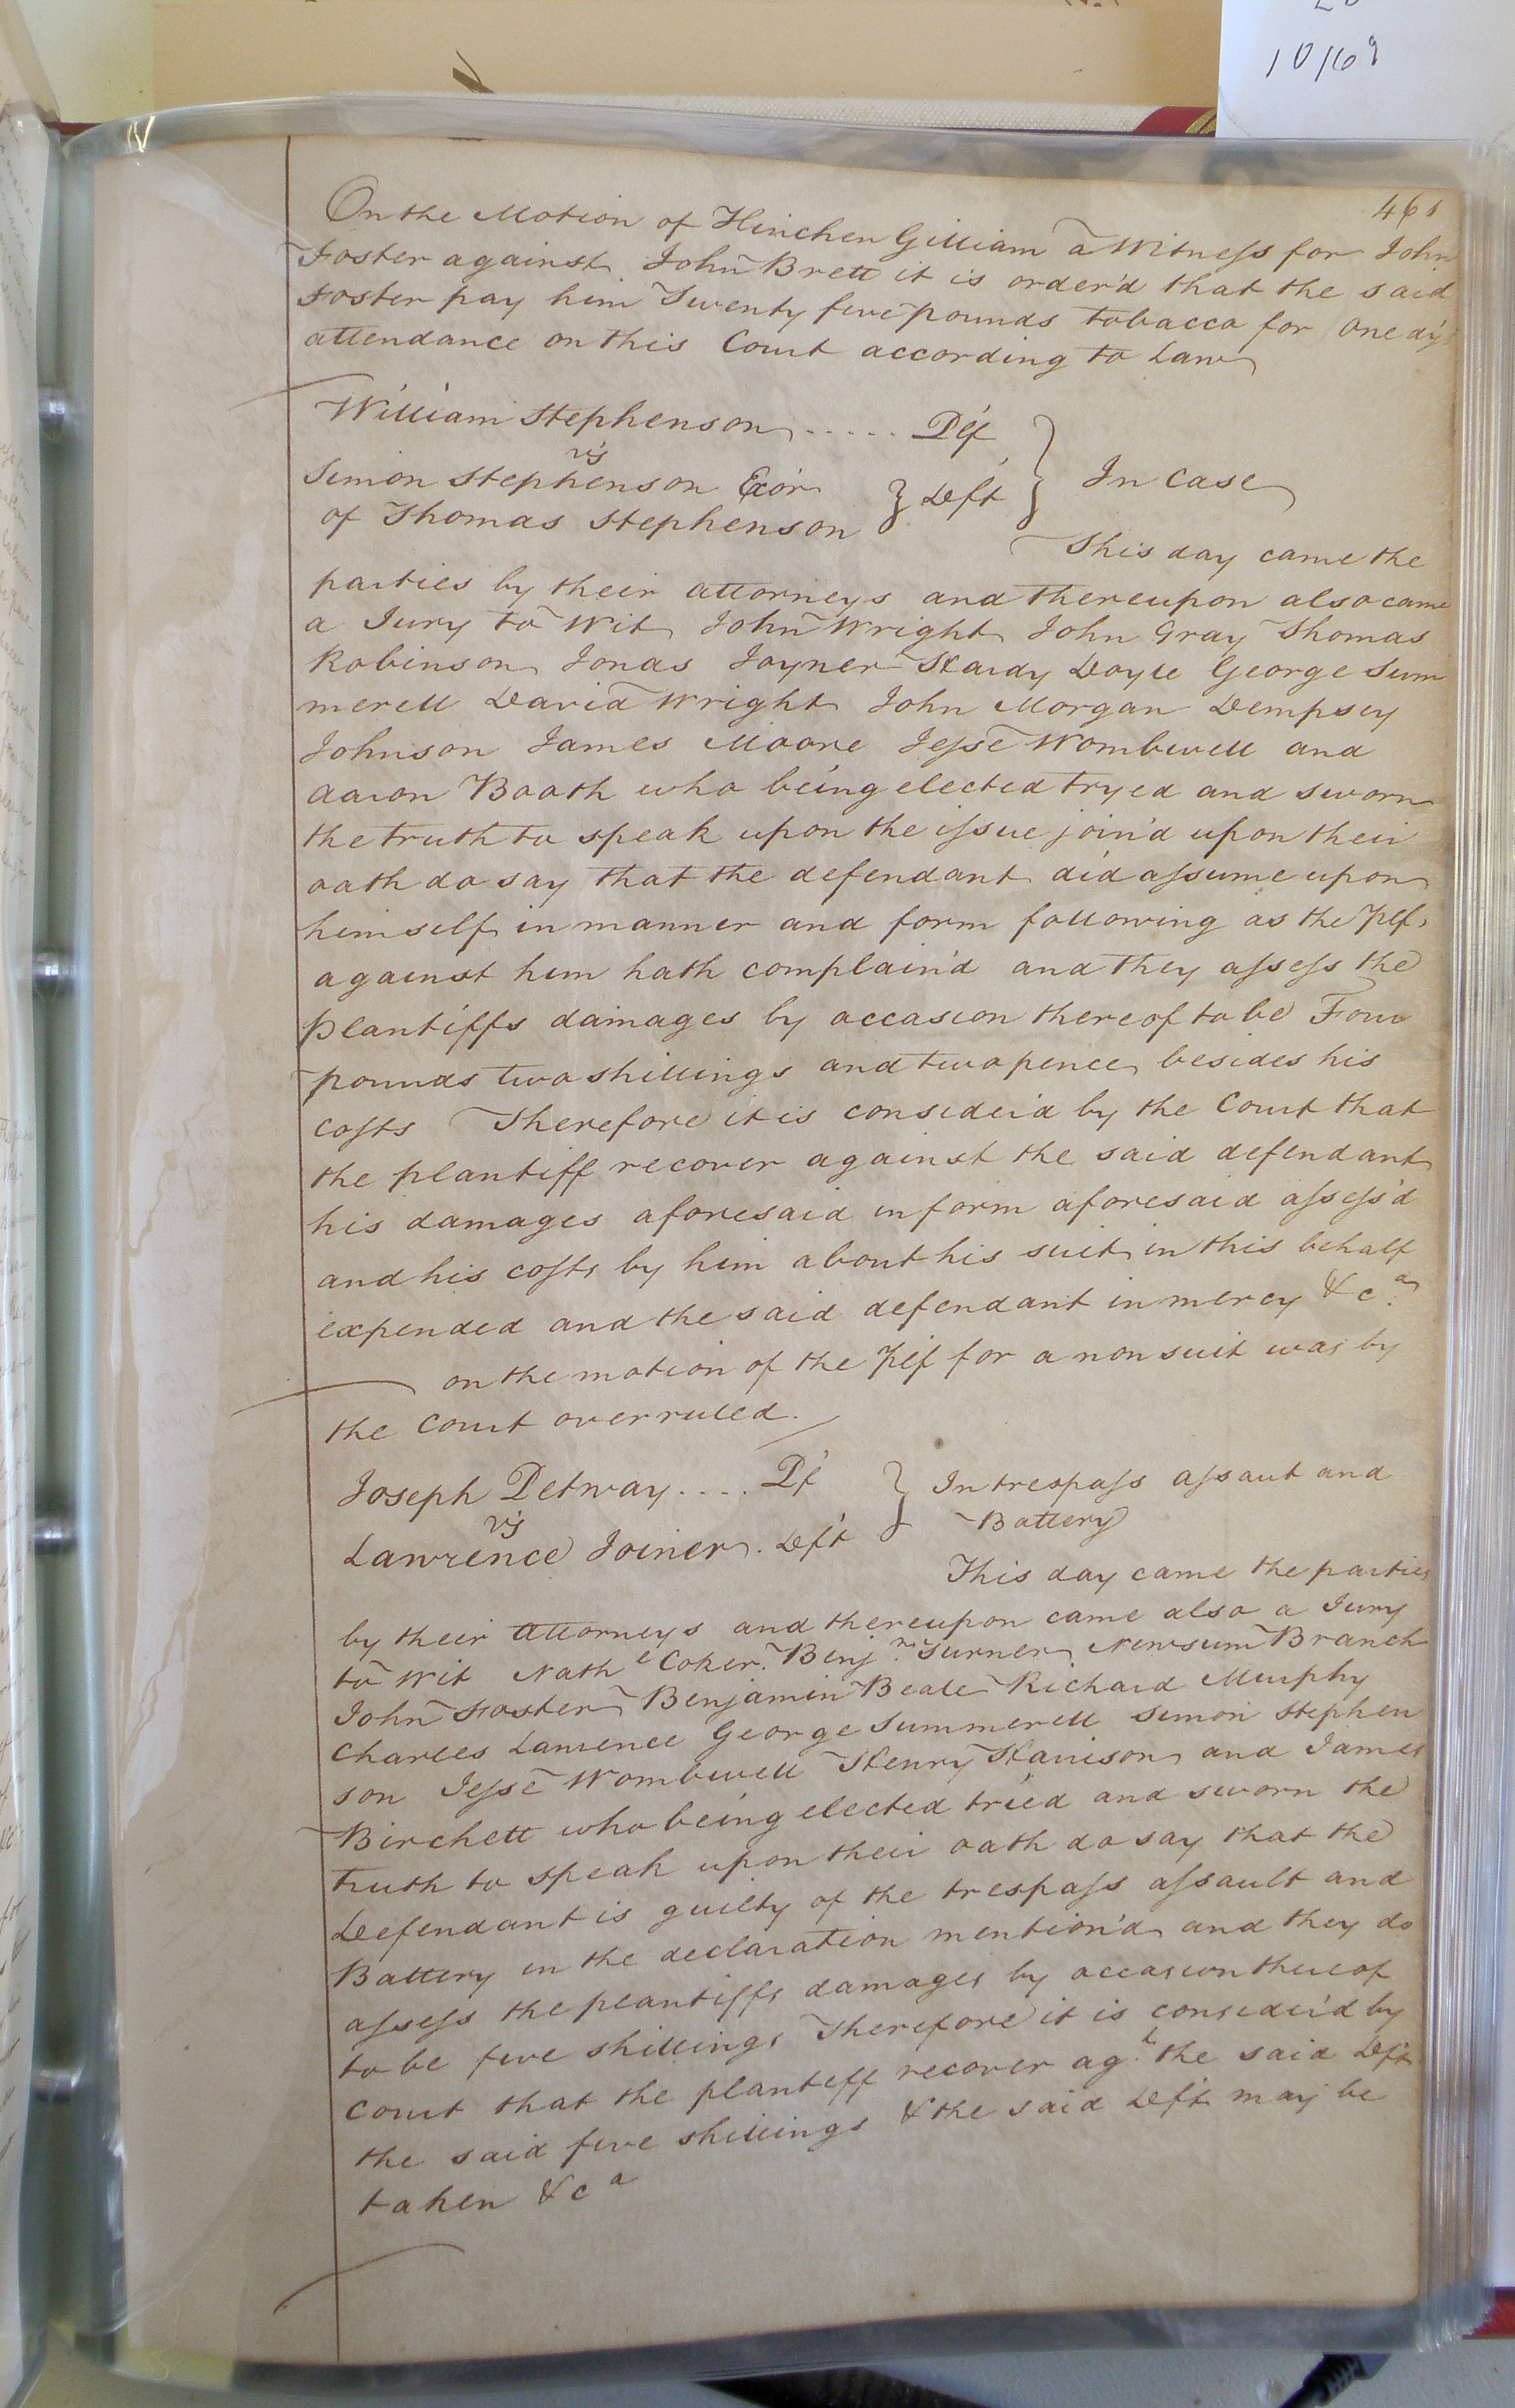 10/69
461
On the Motion of Hinchen Gilliam a Witness for John
Foster against John Brett it is order'd that the said
Foster pay him Twenty five pounds tobacco for one dys
attendance on this Court according to Law
William Stephenson ..... Plf
vs
Simon Stephenson Exor
of Thomas Stephenson } Deft } In Case
This day came the
parties by their attorneys and thereupon also came
a Jury to Wit John Wright John Gray Thomas
Robinson Jonas Joyner Hardy Doyle George Sum
merell David Wright John Morgan Dempsey
Johnson James Moore Jesse Wombwell and
Aaron Booth who being elected tryed and sworn
the truth to speak upon the issue join'd upon their
oath do say that the defendant did assume upon
himself in manner and form following as the Plf,
against him hath complain'd and they assess the
plantiffs damages by occasion thereof to be Four
pounds two shillings and two pence besides his
costs Therefore it is consider'd by the Court that
the plantiff recover against the said defendant
his damages aforesaid in form aforesaid assess'd
and his costs by him about his suit in this behalf
expended and the said defendant in mercy &ca
on the motion of the Plf for a non suit was by
the Court overruled.
Joseph Petway .... Plf } In trespass assaut and
vs Battery
Lawrence Joiner . Deft
This day came the parties
by their attorneys and thereupon came also a Jury
to Wit Nathl Coker. Benjn. Turner Newsum Branch
John Foster Benjamin Beale Richard Murphy
Charles Lawrence George Summerell Simon Stephen
son Jesse Wombwell Henry Harrison and James
Birchett who being elected tried and sworn the
truth to speak upon their oath do say that the
Defendant is guilty of the trespass assault and
Battery in the declaration mention'd and they do
assess the plantiffs damages by occasion thereof
to be five shillings Therefore it is consider'd by
Court that the plantiff recover agt. the said Deft
the said five shillings & the said Deft may be
taken &ca